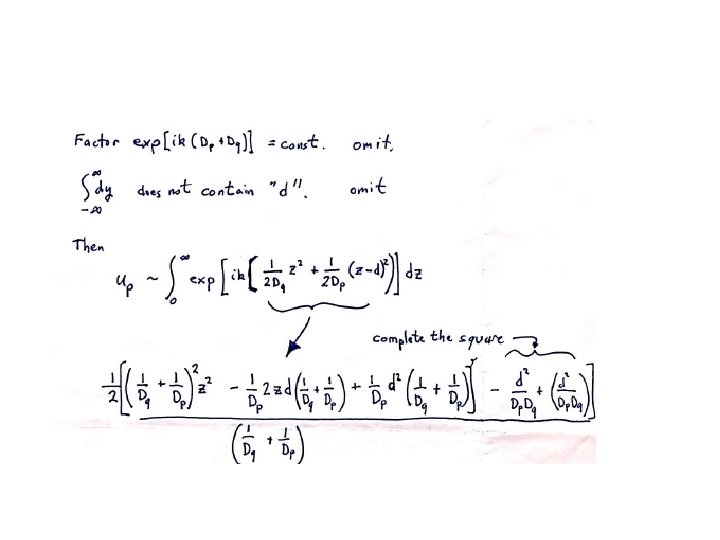 Factor exp[ik(Dp+Dq)] = const. omit.
∫_{-∞}^{∞} dy does not contain "d". omit
Then
u_p ~ ∫_0^∞ exp[ik[1/(2Dq) z² + 1/(2Dp) (z-d)²)]] dz
complete the square
1/2[(1/Dq + 1/Dp)² z² - 1/Dp 2zd(1/Dq + 1/Dp) + 1/Dp d²(1/Dq + 1/Dp)] - d²/(DpDq) + (d²/(DpDq))]
(1/Dq + 1/Dp)